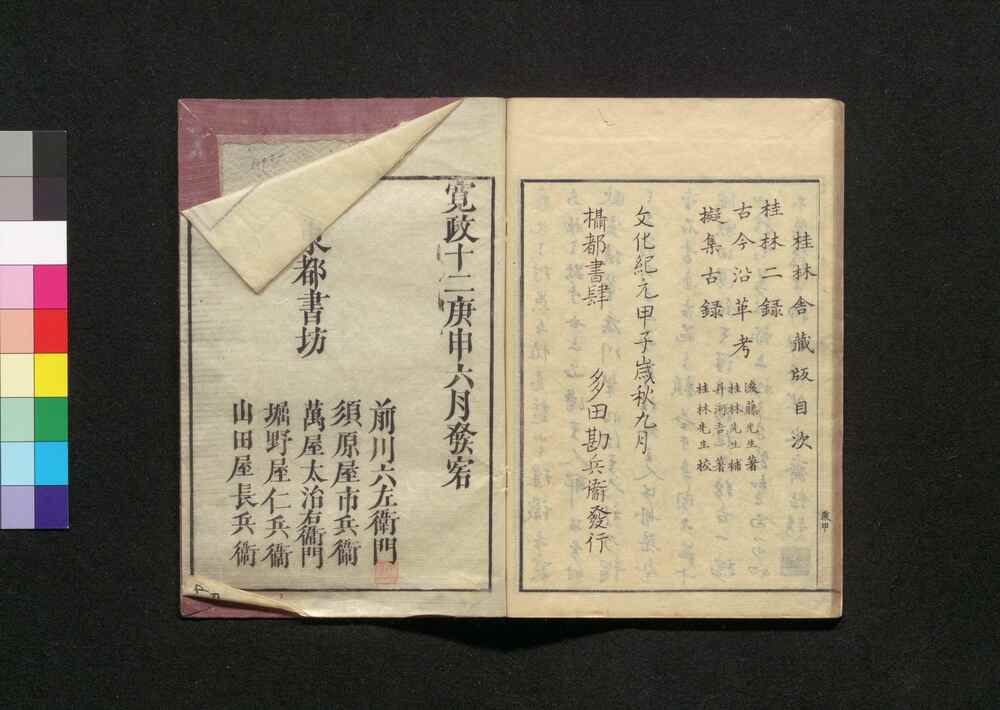 桂林舎藏版目次
桂林二録
古今沿革考 後藤先生著 桂林先生補
擬集古録 井河吉著 桂林先生校
文化紀元甲子歳秋九月
攝都書肆 多田勘兵衞發行
寛政十二庚申六月發客
都書坊
前川六左衞門
須原屋市兵衞
萬屋太治右衞門
堀野屋仁兵衞
山田屋長兵衞